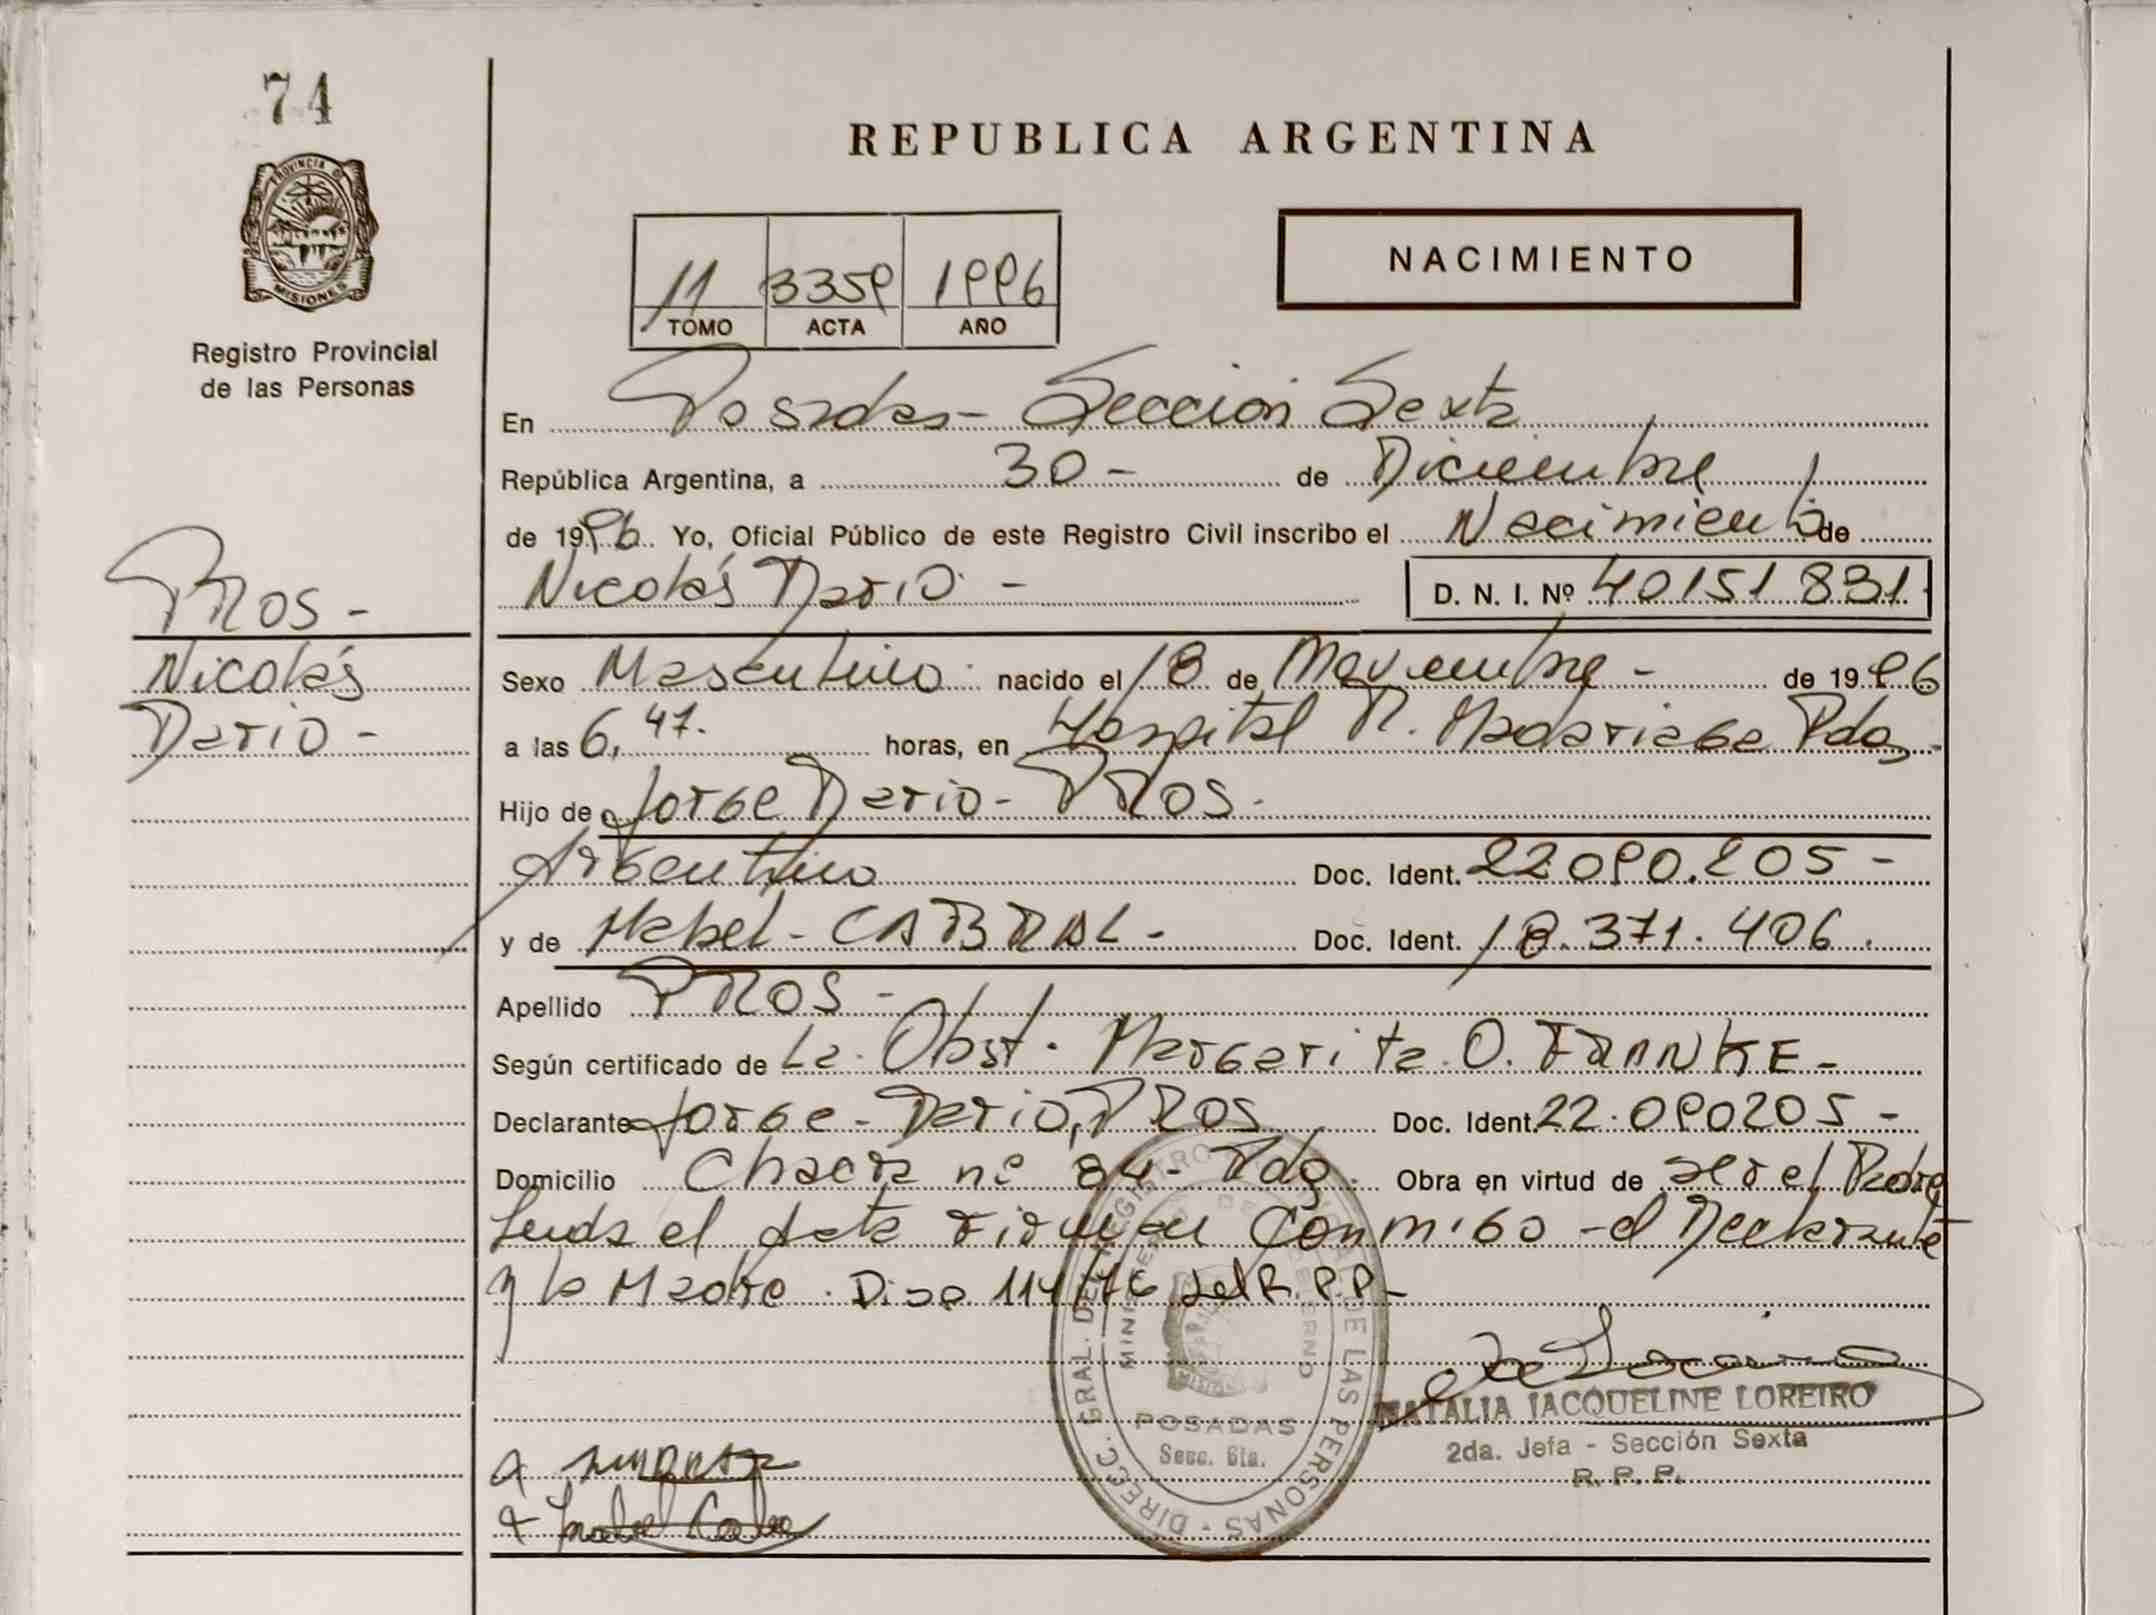 74
PROVINCIA DE
MISIONES
Registro Provincial
de las Personas
REPUBLICA ARGENTINA
11 3359 1996
TOMO ACTA AÑO
NACIMIENTO
En Posadas - Sección Sexta
República Argentina, a 30 - de Diciembre
de 1996 Yo, Oficial Público de este Registro Civil inscribo el Nacimiento de
Nicolás Dario - D. N. I. Nº 40151831.
PROS -
Nicolás
Dario -
Sexo Masculino nacido el 18 de Noviembre - de 1996
a las 6,47. horas, en Hospital R. Madariaga Pdas -
Hijo de Jorge Dario - PROS -
Argentino Doc. Ident. 22090.205 -
y de Mabel - CABRAL - Doc. Ident. 18.371.406.
Apellido PROS -
Según certificado de La Obst. Margarita O. FRANKE -
Declarante Jorge - Dario, PROS Doc. Ident. 22.090205 -
Domicilio Chacra nº 84 - Pdas Obra en virtud de ser el Padre
Leida el Acta Firman Conmigo - el Declarante
y la Madre. Disp. 114/76 del R.P.P -
DIREC. GRAL. DEL REGISTRO DE LAS PERSONAS
POSADAS
Secc. 6ta.
NATALIA JACQUELINE LOREIRO
2da. Jefa - Sección Sexta
R. P. P.